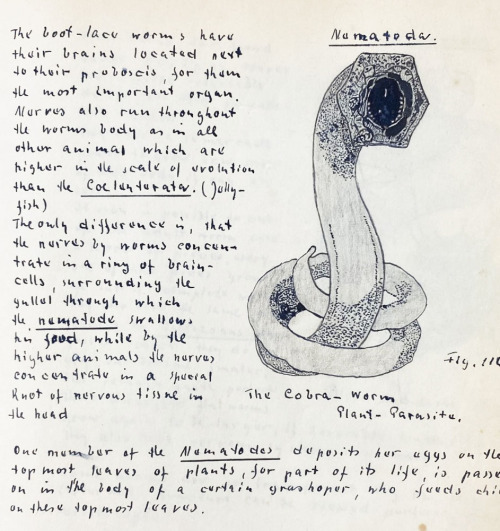 The boot-lace worms have
their brains located next
to their proboscis, for them
the most important organ.
Nerves also run throughout
the worms body as in all
other animal which are
higher in the scale of evolution
than the Coelenterata. (Jelly-
fish)
The only difference is, that
the nerves by worms concen-
trate in a ring of brain-
cells, surrounding the
gullet through which
the nematode swallows
his food, while by the
higher animals the nerves
concentrate in a special
knot of nervous tissue in
the head
Nematoda.
Fig. 11
The Cobra-Worm
Plant-Parasite.
One member of the Nematodes deposits her eggs on the
top most leaves of plants, for part of its life, is passe
on in the body of a certain grashoper, who feeds chi
on these topmost leaves.